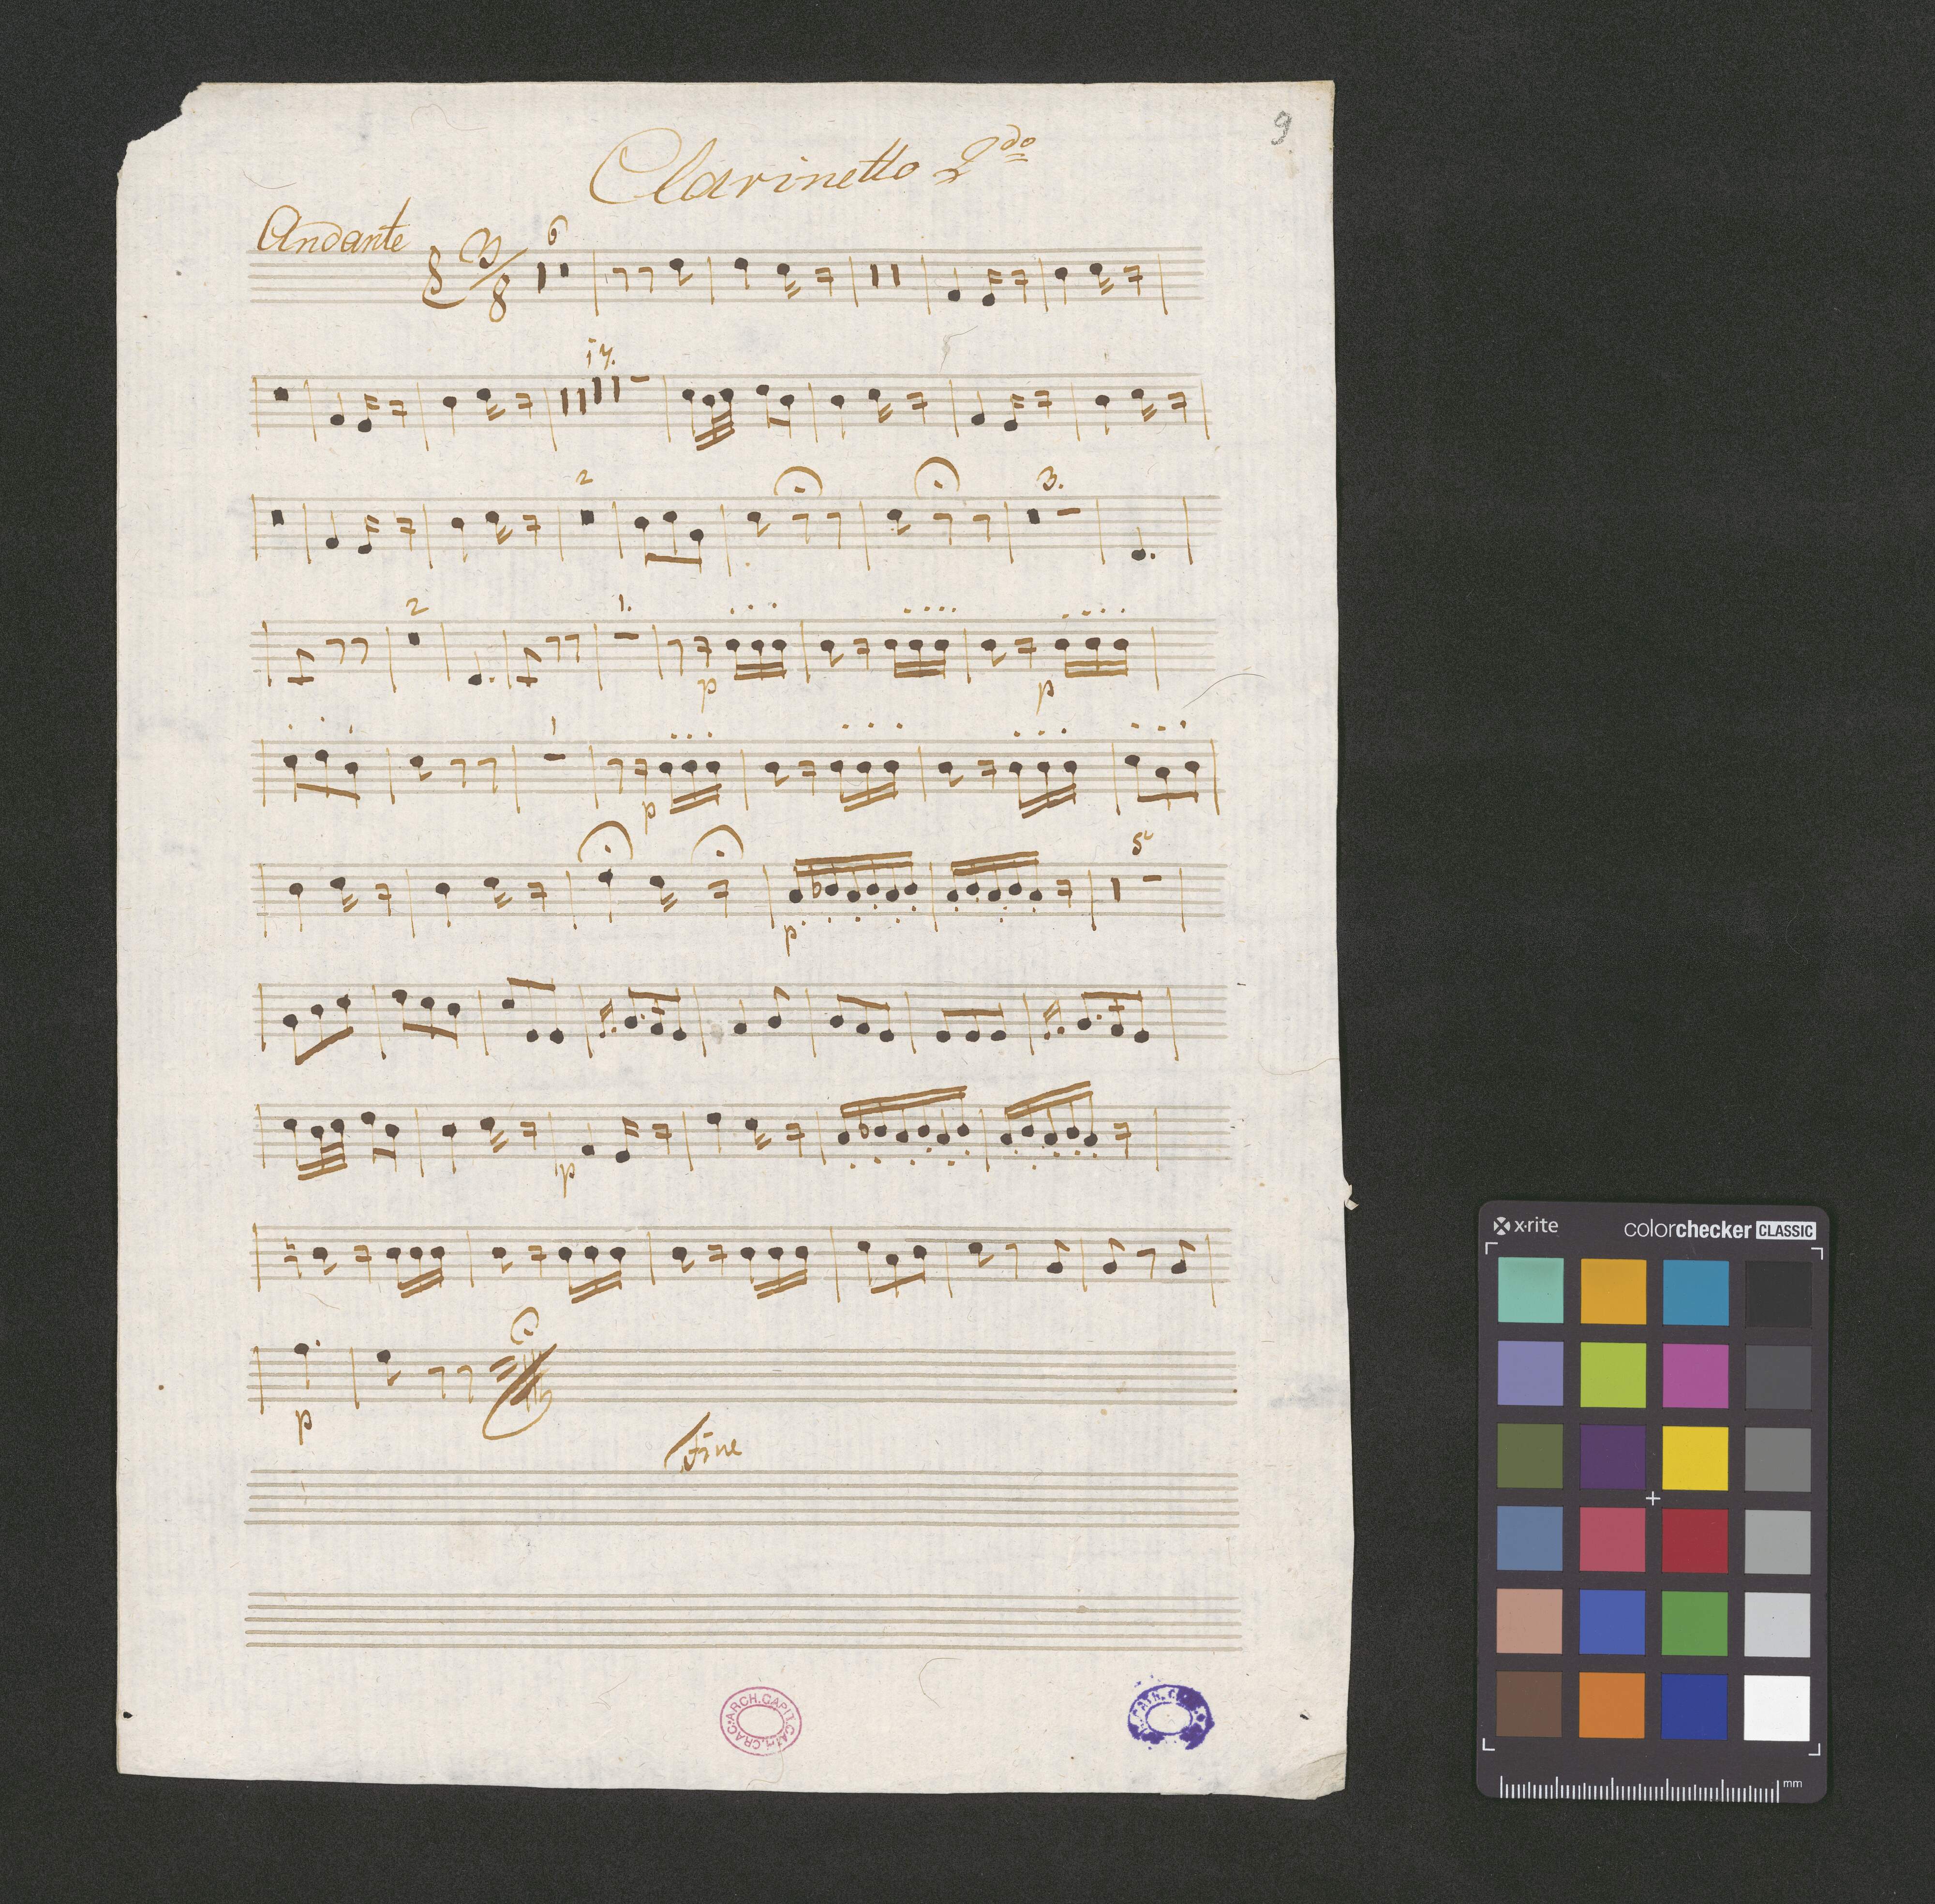 9
Clarinetto 2do
Andante
3/8
6
17.
2
3.
2
1.
p
p
1
p
p.
5
p
p
Fine
ARCH. CAPIT. CATH. CRAC.
x-rite
colorchecker CLASSIC
mm